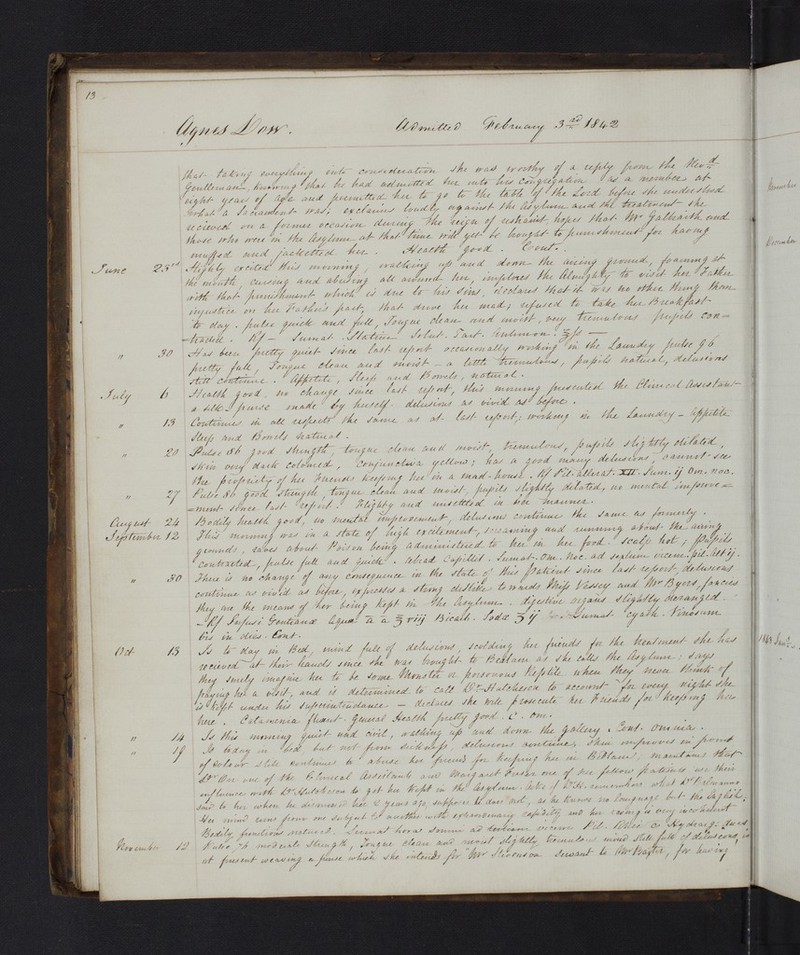 13
Agnes Dow. Admitted February 3rd 1842
that taking everything into consideration she was worthy of a reply from the Revd
Gentleman, knowing that he had admitted her into his Congregation as a member at
eight years of age and permitted her to go to the table of the Lord before she understood
what a Sacrament was, exclaims loudly against the Asylum and the treatment she
recieved on a former occasion during the reign of restraint hopes that Mr Galbraith and
those who were in the Asylum at that time will yet be brought to punishment for having
muffed and jacketted her. Health good. Cont.
June 23rd Slightly excited this morning, walking up and down the airing ground, foaming at
the mouth, cursing and abusing all around her, implores the Almighty to visit her Father
with that punishment which is due to his sins, declares that it was no other thing than
injustice on her Father's part, that drove her mad; refused to take her Breakfast
to day. pulse quick and full, Tongue clean and moist, very tremulous pupils con=
=tracted. Rf - Sumat Statim Solut. Tart. ʒfs —
" 30 Has been pretty quiet since last report occasionally working in the Laundry pulse 96
pretty full, Tongue clean and moist - a little tremulous, pupils natural, delusions
still continue. Appetite, Sleep and Bowels, natural.
July 6 Health good, no change since last report, this morning presented the Clinical Assistant
a silk purse made by herself. delusions as vivid as before.
" 13 Continues in all respects the same as at last report; working in the Laundry - appetite
Sleep and Bowels natural.
" 20 Pulse 86 good strength, tongue clean and moist, tremulous, pupils slightly dilated,
skin very dark coloured, conjunctiva yellow; has a good many delusions, cannot see
the propriety of her Friends keeping her in a mad-house. Rf Pil. XII. Sum. ij Om. noc.
" 27 Pulse 80 good strength, tongue clean and moist, pupils slightly dilated, no mental improve=
=ment since last report. Flighty and unsettled in her manner.
August 24 Bodily health good, no mental improvement, delusions continue the same as formerly.
September 12 This morning was in a state of high excitement, screaming and running about the airing
grounds, raves about Poison being administered to her in her food. scalp hot; Pupils
contracted, pulse full and quick. Abrad Capillit. Sumat. Om. Noc. ad vicem. pil.
" 30 There is no change of any consequence in the state of this patient since last report, delusions
continue as vivid as before, expresses a strong dislike towards Miss Vessey and Mr Byers, fancies
they are the means of her being kept in the Asylum. digestive organs slightly deranged.
- Rf Infusi Gentianæ Aquæ a a ʒviij Bicarb. Sodæ ʒij Sumat. cyath. Vinosum
bis in dies. Cont.
Oct 13 Is to day in Bed, mind full of delusions, scolding her friends for the treatment she has
recieved at their hands since she was brought to Bedlam as she calls the Asylum; says
they surely imagine her to be some Monster or poisonous Reptile when they never think of
paying her a visit, and is determined to call Dr Hutcheson to account for every night she
is kept under his superintendance - declares she will prosecute her Friends for keeping her
here. Catamenia fluunt. General Health pretty good. C. om.
" 14 Is this morning quiet and civil, walking up and down the gallery. Cont. omnia.
" 19 Is today in bed, but not from sickness, delusions continue, skin improves in point
of colour still continues to abuse her friends for keeping her in Bedlam; maintains that
Dr Orr one of the Clinical Assistants and Margaret Fraser one of her fellow patients use their
influence with Dr Hutcheson to get her kept in the Asylum. Asks if Dr H. remembers what Dr
said to her when he dismissed her 2 years ago, supposes he dare not, as he knows no language but the English;
Her mind runs from one subject to another with extraordinary rapidity and her raving is very incoherent
Bodily functions natural. Sumat hora somni ad vicem Pil. Coloc. c Hydrarg: duas
November 12 Pulse 76 moderate strength, Tongue clean and moist slightly tremulous mind still full of delusions, is
at present weaving a purse which she intends for Mr Stevenson Servant to Mr Baxter, for having
November
December
1843 Jan